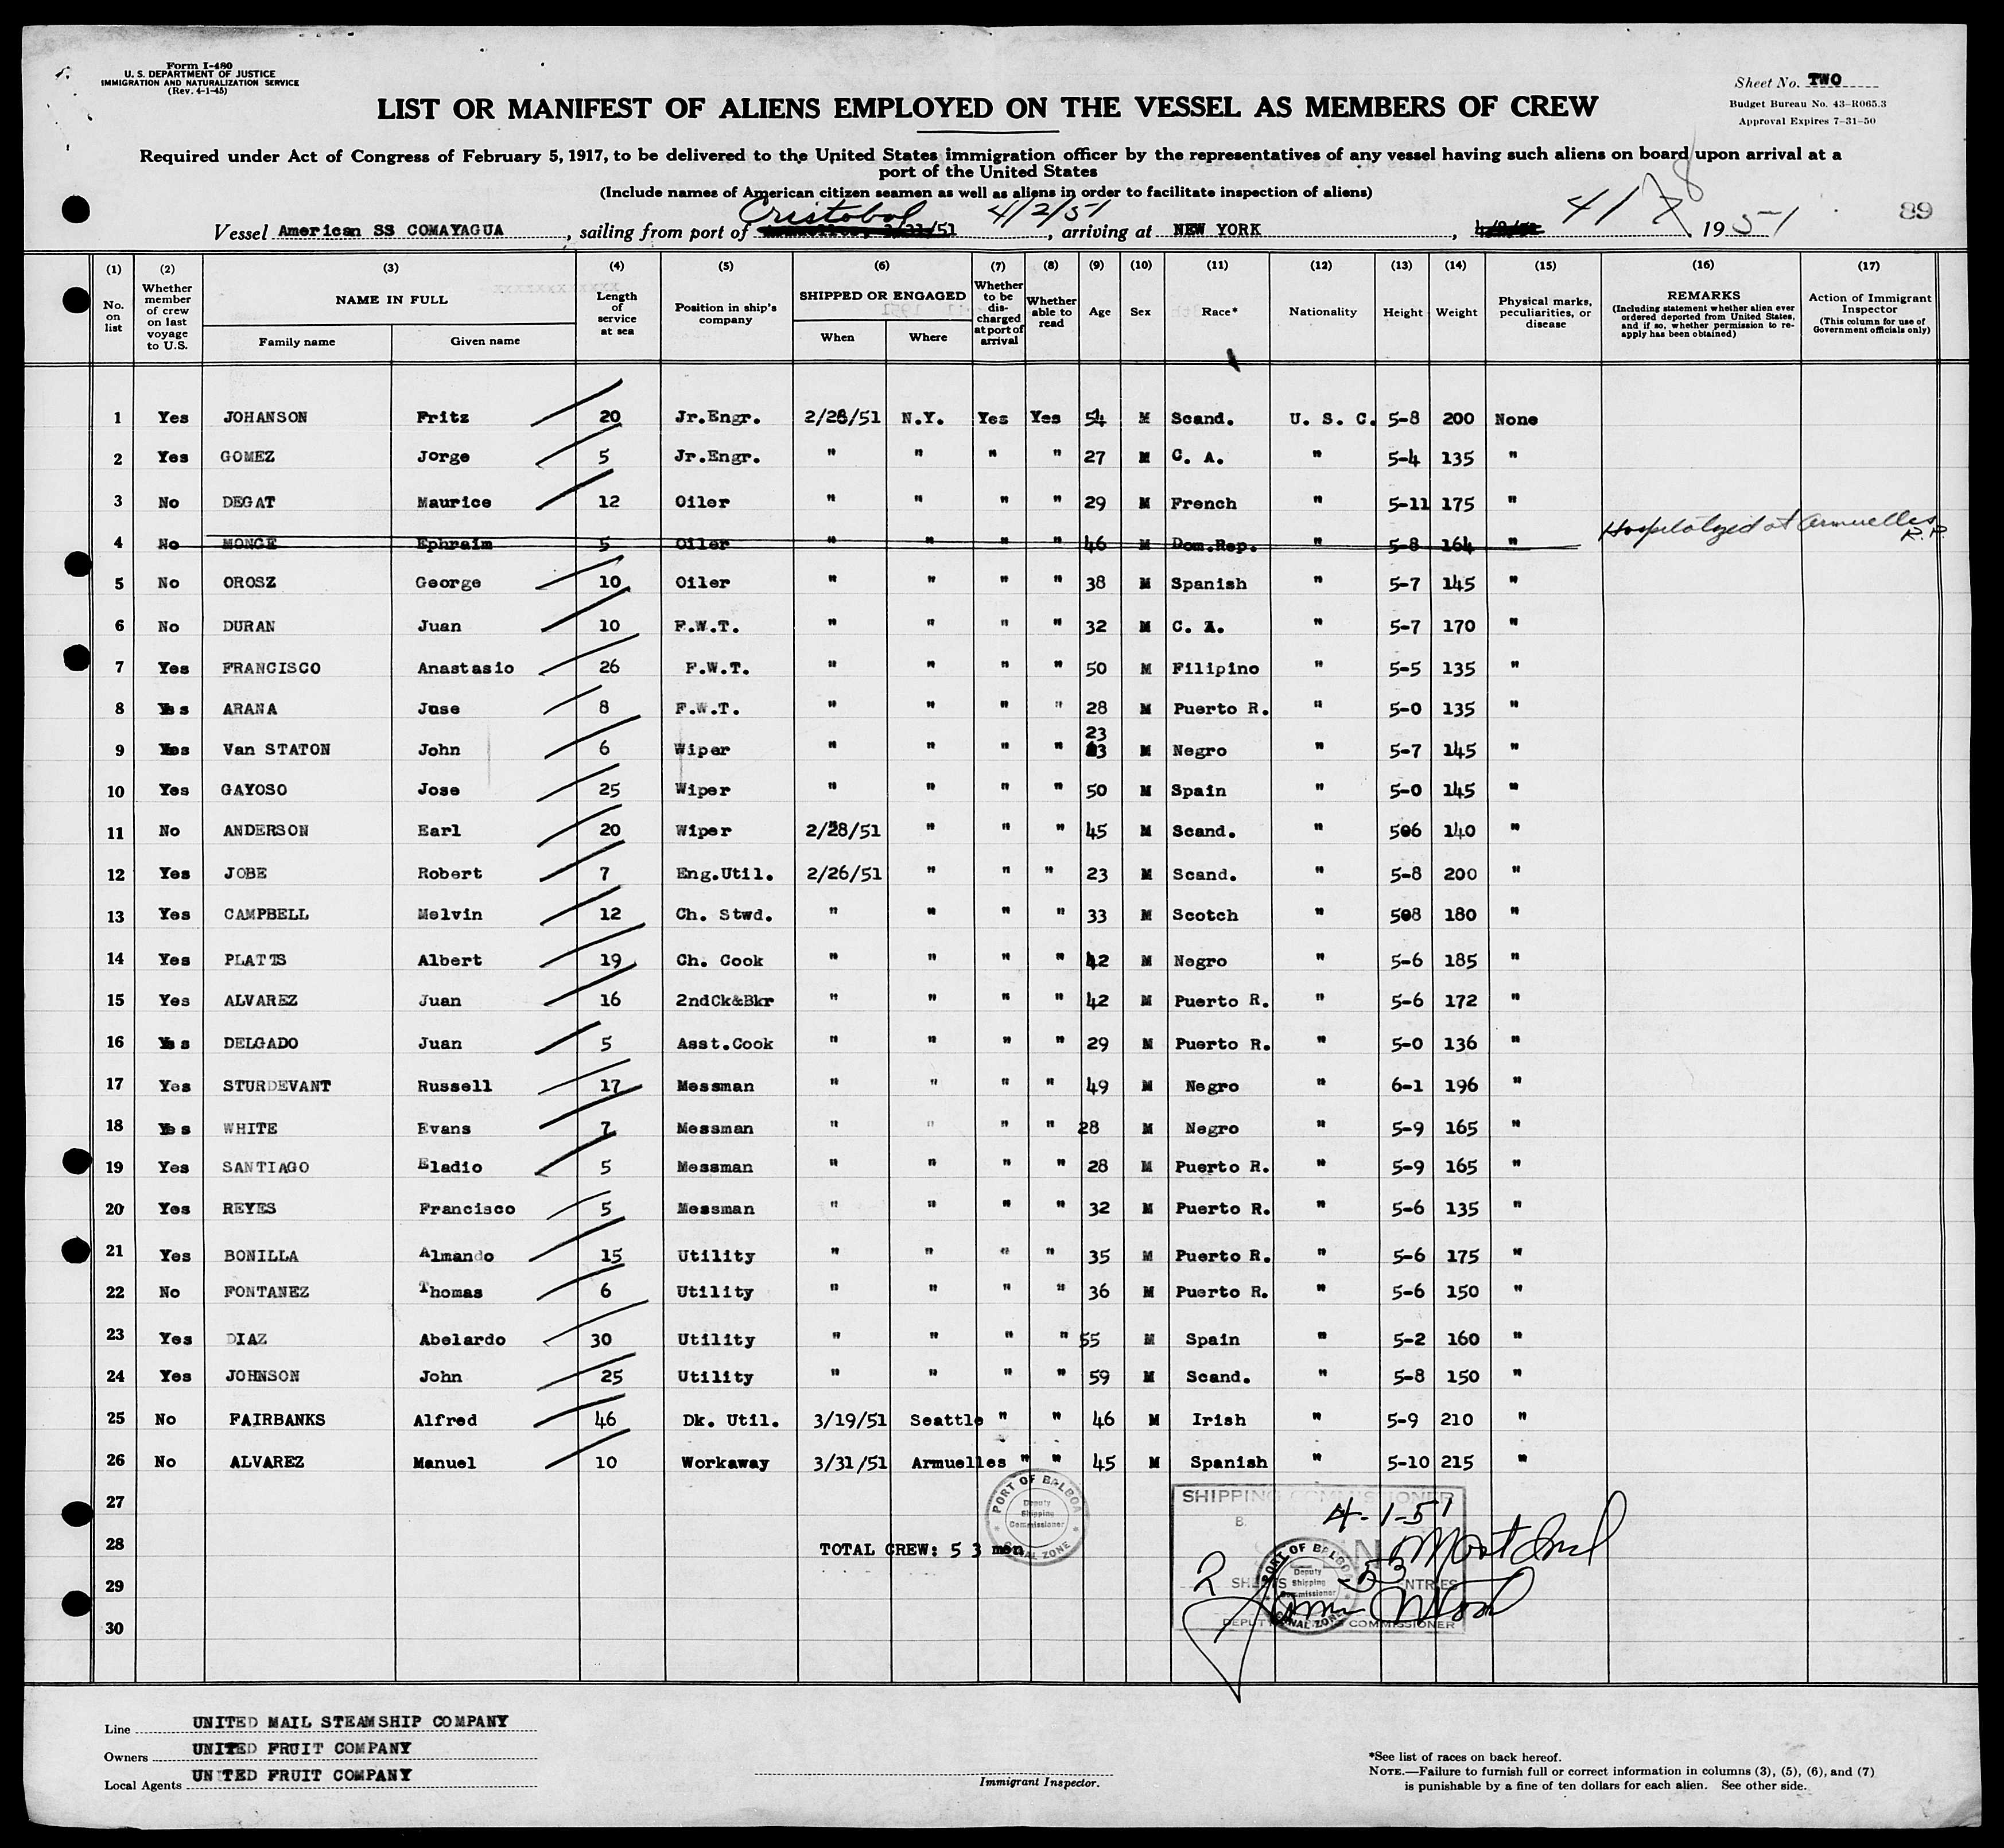 Form I-480
U. S. DEPARTMENT OF JUSTICE
IMMIGRATION AND NATURALIZATION SERVICE
(Rev. 4-1-45)
Sheet No. TWO
Budget Bureau No. 43-R065.3
Approval Expires 7-31-50
LIST OR MANIFEST OF ALIENS EMPLOYED ON THE VESSEL AS MEMBERS OF CREW
Required under Act of Congress of February 5, 1917, to be delivered to the United States immigration officer by the representatives of any vessel having such aliens on board upon arrival at a
port of the United States
(Include names of American citizen seamen as well as aliens in order to facilitate inspection of aliens)
Cristobal 4/2/51 4/7 8
Vessel American SS COMAYAGUA, sailing from port of , arriving at NEW YORK, , 1951 89
(1) (2) (3) (4) (5) (6) (7) (8) (9) (10) (11) (12) (13) (14) (15) (16) (17)
No. on list Whether member of crew on last voyage to U.S. NAME IN FULL Family name Given name Length of service at sea Position in ship's company SHIPPED OR ENGAGED When Where Whether to be discharged at port of arrival Whether able to read Age Sex Race* Nationality Height Weight Physical marks, peculiarities, or disease REMARKS (Including statement whether alien ever ordered deported from United States, and if so, whether permission to reapply has been obtained) Action of Immigrant Inspector (This column for use of Government officials only)
1 Yes JOHANSON Fritz 20 Jr.Engr. 2/28/51 N.Y. Yes Yes 54 M Scand. U. S. C. 5-8 200 None
2 Yes GOMEZ Jorge 5 Jr.Engr. " " " " 27 M C. A. " 5-4 135 "
3 No DEGAT Maurice 12 Oiler " " " " 29 M French " 5-11 175 "
4 No MONGE Ephraim 5 Oiler " " " " 46 M Dom.Rep. " 5-8 164 " Hospitalized at Armuelles R.P.
5 No OROSZ George 10 Oiler " " " " 38 M Spanish " 5-7 145 "
6 No DURAN Juan 10 F.W.T. " " " " 32 M C. A. " 5-7 170 "
7 Yes FRANCISCO Anastasio 26 F.W.T. " " " " 50 M Filipino " 5-5 135 "
8 Yes ARANA Jose 8 F.W.T. " " " " 28 M Puerto R. " 5-0 135 "
9 Yes Van STATON John 6 Wiper " " " " 23 M Negro " 5-7 145 "
10 Yes GAYOSO Jose 25 Wiper " " " " 50 M Spain " 5-0 145 "
11 No ANDERSON Earl 20 Wiper 2/28/51 " " " 45 M Scand. " 506 140 "
12 Yes JOBE Robert 7 Eng.Util. 2/26/51 " " " 23 M Scand. " 5-8 200 "
13 Yes CAMPBELL Melvin 12 Ch. Stwd. " " " " 33 M Scotch " 508 180 "
14 Yes PLATTS Albert 19 Ch. Cook " " " " 42 M Negro " 5-6 185 "
15 Yes ALVAREZ Juan 16 2ndCk&Bkr " " " " 42 M Puerto R. " 5-6 172 "
16 Yes DELGADO Juan 5 Asst.Cook " " " " 29 M Puerto R. " 5-0 136 "
17 Yes STURDEVANT Russell 17 Messman " " " " 49 M Negro " 6-1 196 "
18 Yes WHITE Evans 7 Messman " " " " 28 M Negro " 5-9 165 "
19 Yes SANTIAGO Eladio 5 Messman " " " " 28 M Puerto R. " 5-9 165 "
20 Yes REYES Francisco 5 Messman " " " " 32 M Puerto R. " 5-6 135 "
21 Yes BONILLA Almando 15 Utility " " " " 35 M Puerto R. " 5-6 175 "
22 No FONTANEZ Thomas 6 Utility " " " " 36 M Puerto R. " 5-6 150 "
23 Yes DIAZ Abelardo 30 Utility " " " " 55 M Spain " 5-2 160 "
24 Yes JOHNSON John 25 Utility " " " " 59 M Scand. " 5-8 150 "
25 No FAIRBANKS Alfred 46 Dk. Util. 3/19/51 Seattle " " 46 M Irish " 5-9 210 "
26 No ALVAREZ Manuel 10 Workaway 3/31/51 Armuelles " " 45 M Spanish " 5-10 215 "
27
28 TOTAL CREW: 5 3 men
29
30
PORT OF BALBOA Deputy Shipping Commissioner CANAL ZONE
SHIPPING COMMISSIONER
4-1-51
2 SHEETS 53 ENTRIES
PORT OF BALBOA Deputy Shipping Commissioner CANAL ZONE
DEPUTY COMMISSIONER
Line UNITED MAIL STEAMSHIP COMPANY
Owners UNITED FRUIT COMPANY
Local Agents UNITED FRUIT COMPANY
Immigrant Inspector.
*See list of races on back hereof.
NOTE.—Failure to furnish full or correct information in columns (3), (5), (6), and (7)
is punishable by a fine of ten dollars for each alien. See other side.